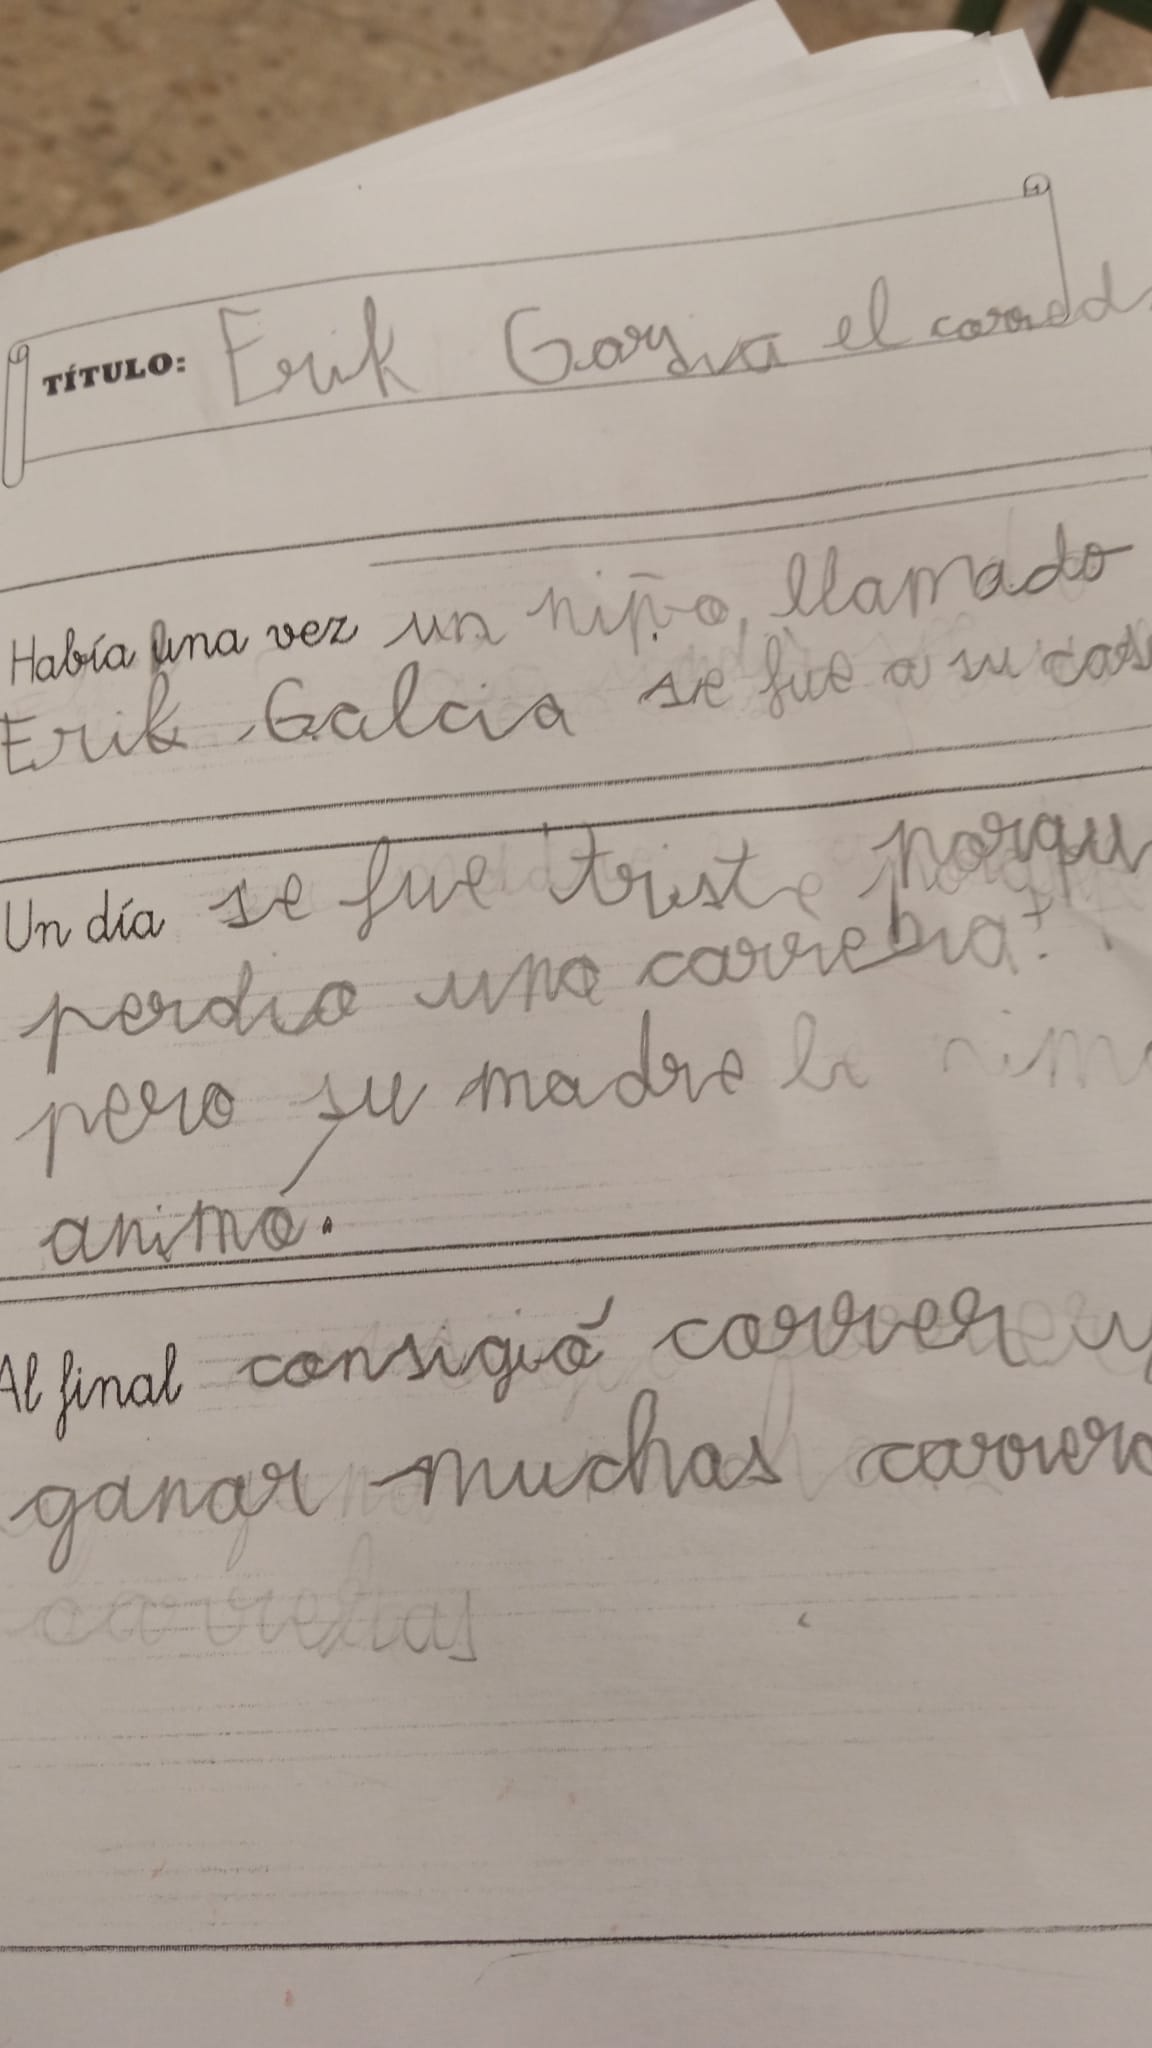 TÍTULO: Erik Garsia el corred
Había una vez un niño, llamado
Erik Galcia se fue a su cas
Un día se fue triste porqu
perdio una carrera
pero su madre le
animó.
Al final consigió correr y
ganar muchas carrera
carreras